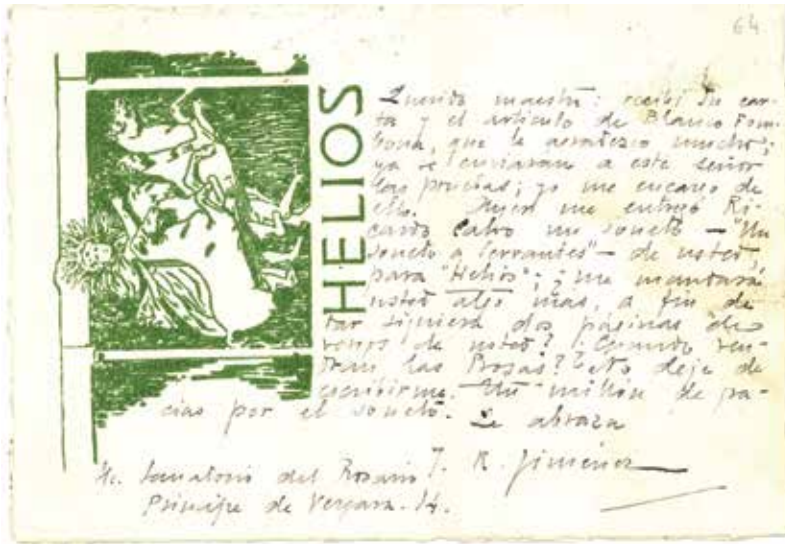 64
HELIOS
Querido maestro: recibí su car-
ta y el artículo de Blanco Fom-
bona, que le agradezco mucho;
ya se enviaran a este señor
las pruebas; yo me encargo de
ello. Ayer me entregó Ri-
cardo Calvo un soneto — "Un
soneto a Cervantes" — de usted,
para "Helios"; ¿me mandará
usted algo mas, a fin de
dar siquiera dos páginas de
versos de usted? ¿Cuando ven-
dran las Prosas? No deje de
escribirme. Un millón de gra-
cias por el soneto.
Le abraza
J. R. Jiménez
Sanatorio del Rosario
Príncipe de Vergara. 14.